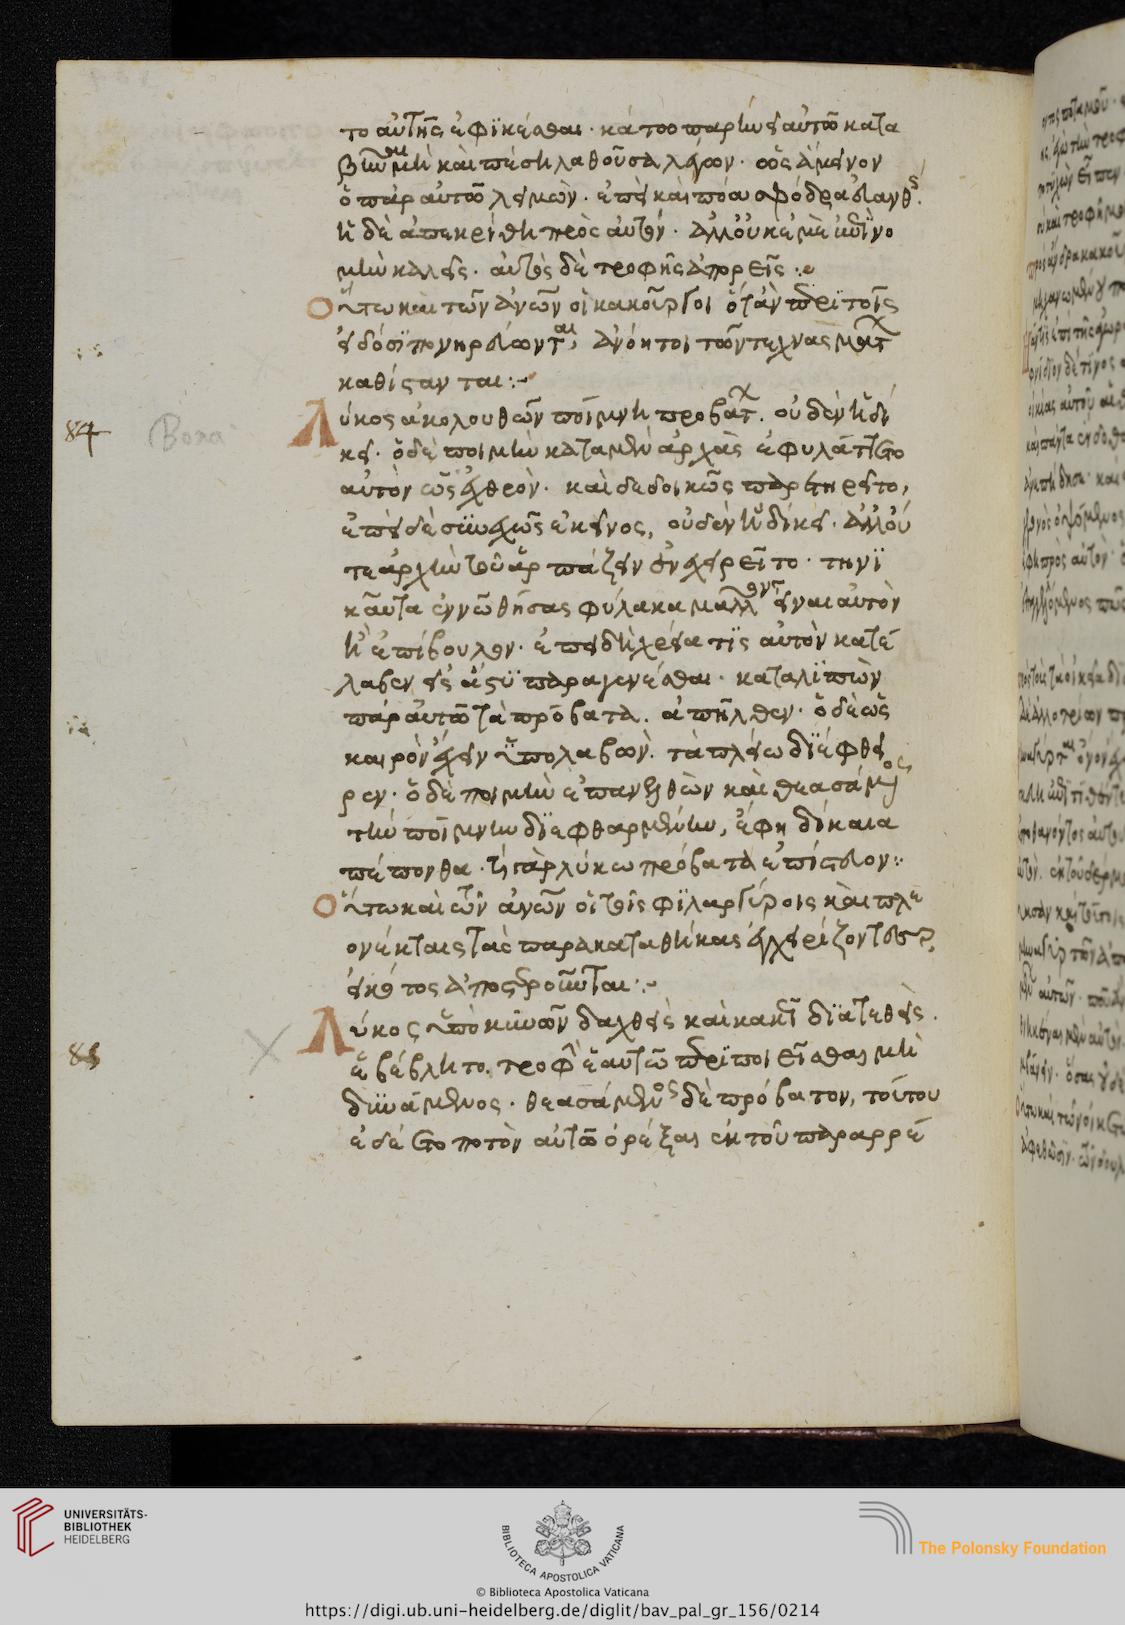 το αὐτῆς ἐφϊκέσθαι· κάτοο παρήνει αὐτῶ κατα
βῆναι μὴ καὶ πέση λαθοῦσα λέγων· ὡς ἀμείνον
ὁ παρ αὐτῶ λειμὼν· ἐπεὶ καὶ πόα σφόδρα εὐανθ(ὴς)·
ἡ δὲ ἀπεκρίθη πρὸς αὐτόν· ἀλλ' οὐκ ἐμὲ ἐπὶ νο
μὴν καλεῖς· αὐτὸς δὲ τροφῆς ἀπορεῖς
Οὕτω καὶ τῶν ἀνων οἱ κακοῦργοι ὅταν περὶ τοῖς
εἰδόσϊ πονηρεύωνται, ἀνόητοι τῶν τεχνασμάτ
καθίστανται
84
Λύκος ἀκολουθῶν ποίμνη προβάτ. οὐδὲν ἠδί
κει· ὁ δὲ ποιμὴν κατα μὲν ἀρχὰς ἐφυλάττετο
αὐτὸν ὡς ἐχθρὸν· καὶ δεδοικῶς παρετηρεῖτο,
ἐπεὶ δὲ συνεχῶς ἐκεῖνος, οὐδὲν ἠδίκει· ἀλλ' οὐ
τε ἀρχὴν τοῦ ἁρπάζειν ἐνεχερεῖτο· τηνϊ
καῦτα ἐννοήσας φύλακα μᾶλλον εἶναι αὐτὸν
ἢ ἐπίβουλον· ἐπειδὴ χρεία τϊς αὐτὸν κατέ
λαβεν εἰς ἄστϋ παραγενέσθαι· καταλϊπὼν
παρ αὐτῶ τὰ πρόβατα. ἀπῆλθεν· ὁ δὲ ὡς
καιρὸν ἔχειν ὑπολαβὼν. τὰ πλείω διέφθει
ρεν· ὁ δὲ ποιμὴν ἐπανελθὼν καὶ θεασάμενος
τὴν ποίμνην διεφθαρμένην, ἔφη δίκαια
πέπονθα· τί γὰρ λύκω πρόβατα ἐπίστευον
Οὕτω καὶ τῶν ἀνων οἱ τοῖς φϊλαργύροις καὶ πλε
ονέκταις τὰς παρακαταθήκας ἐγχειρίζοντες,
εἰκότος ἀποστεροῦνται
85
Λύκος ὑπὸ κυνῶν δαχθεὶς καὶ κακῶς διατεθεὶς.
ἐβέβλητο. τροφὴν ἑαυτῶ περϊποιεῖσθαι μὴ
δυνάμενος· θεασάμενος δὲ πρόβατον, τούτου
ἐδέετο ποτὸν αὐτῶ ὀρέξαι ἐκ τοῦ παραρρέ
UNIVERSITÄTS-
BIBLIOTHEK
HEIDELBERG
BIBLIOTECA APOSTOLICA VATICANA
© Biblioteca Apostolica Vaticana
The Polonsky Foundation
https://digi.ub.uni-heidelberg.de/diglit/bav_pal_gr_156/0214